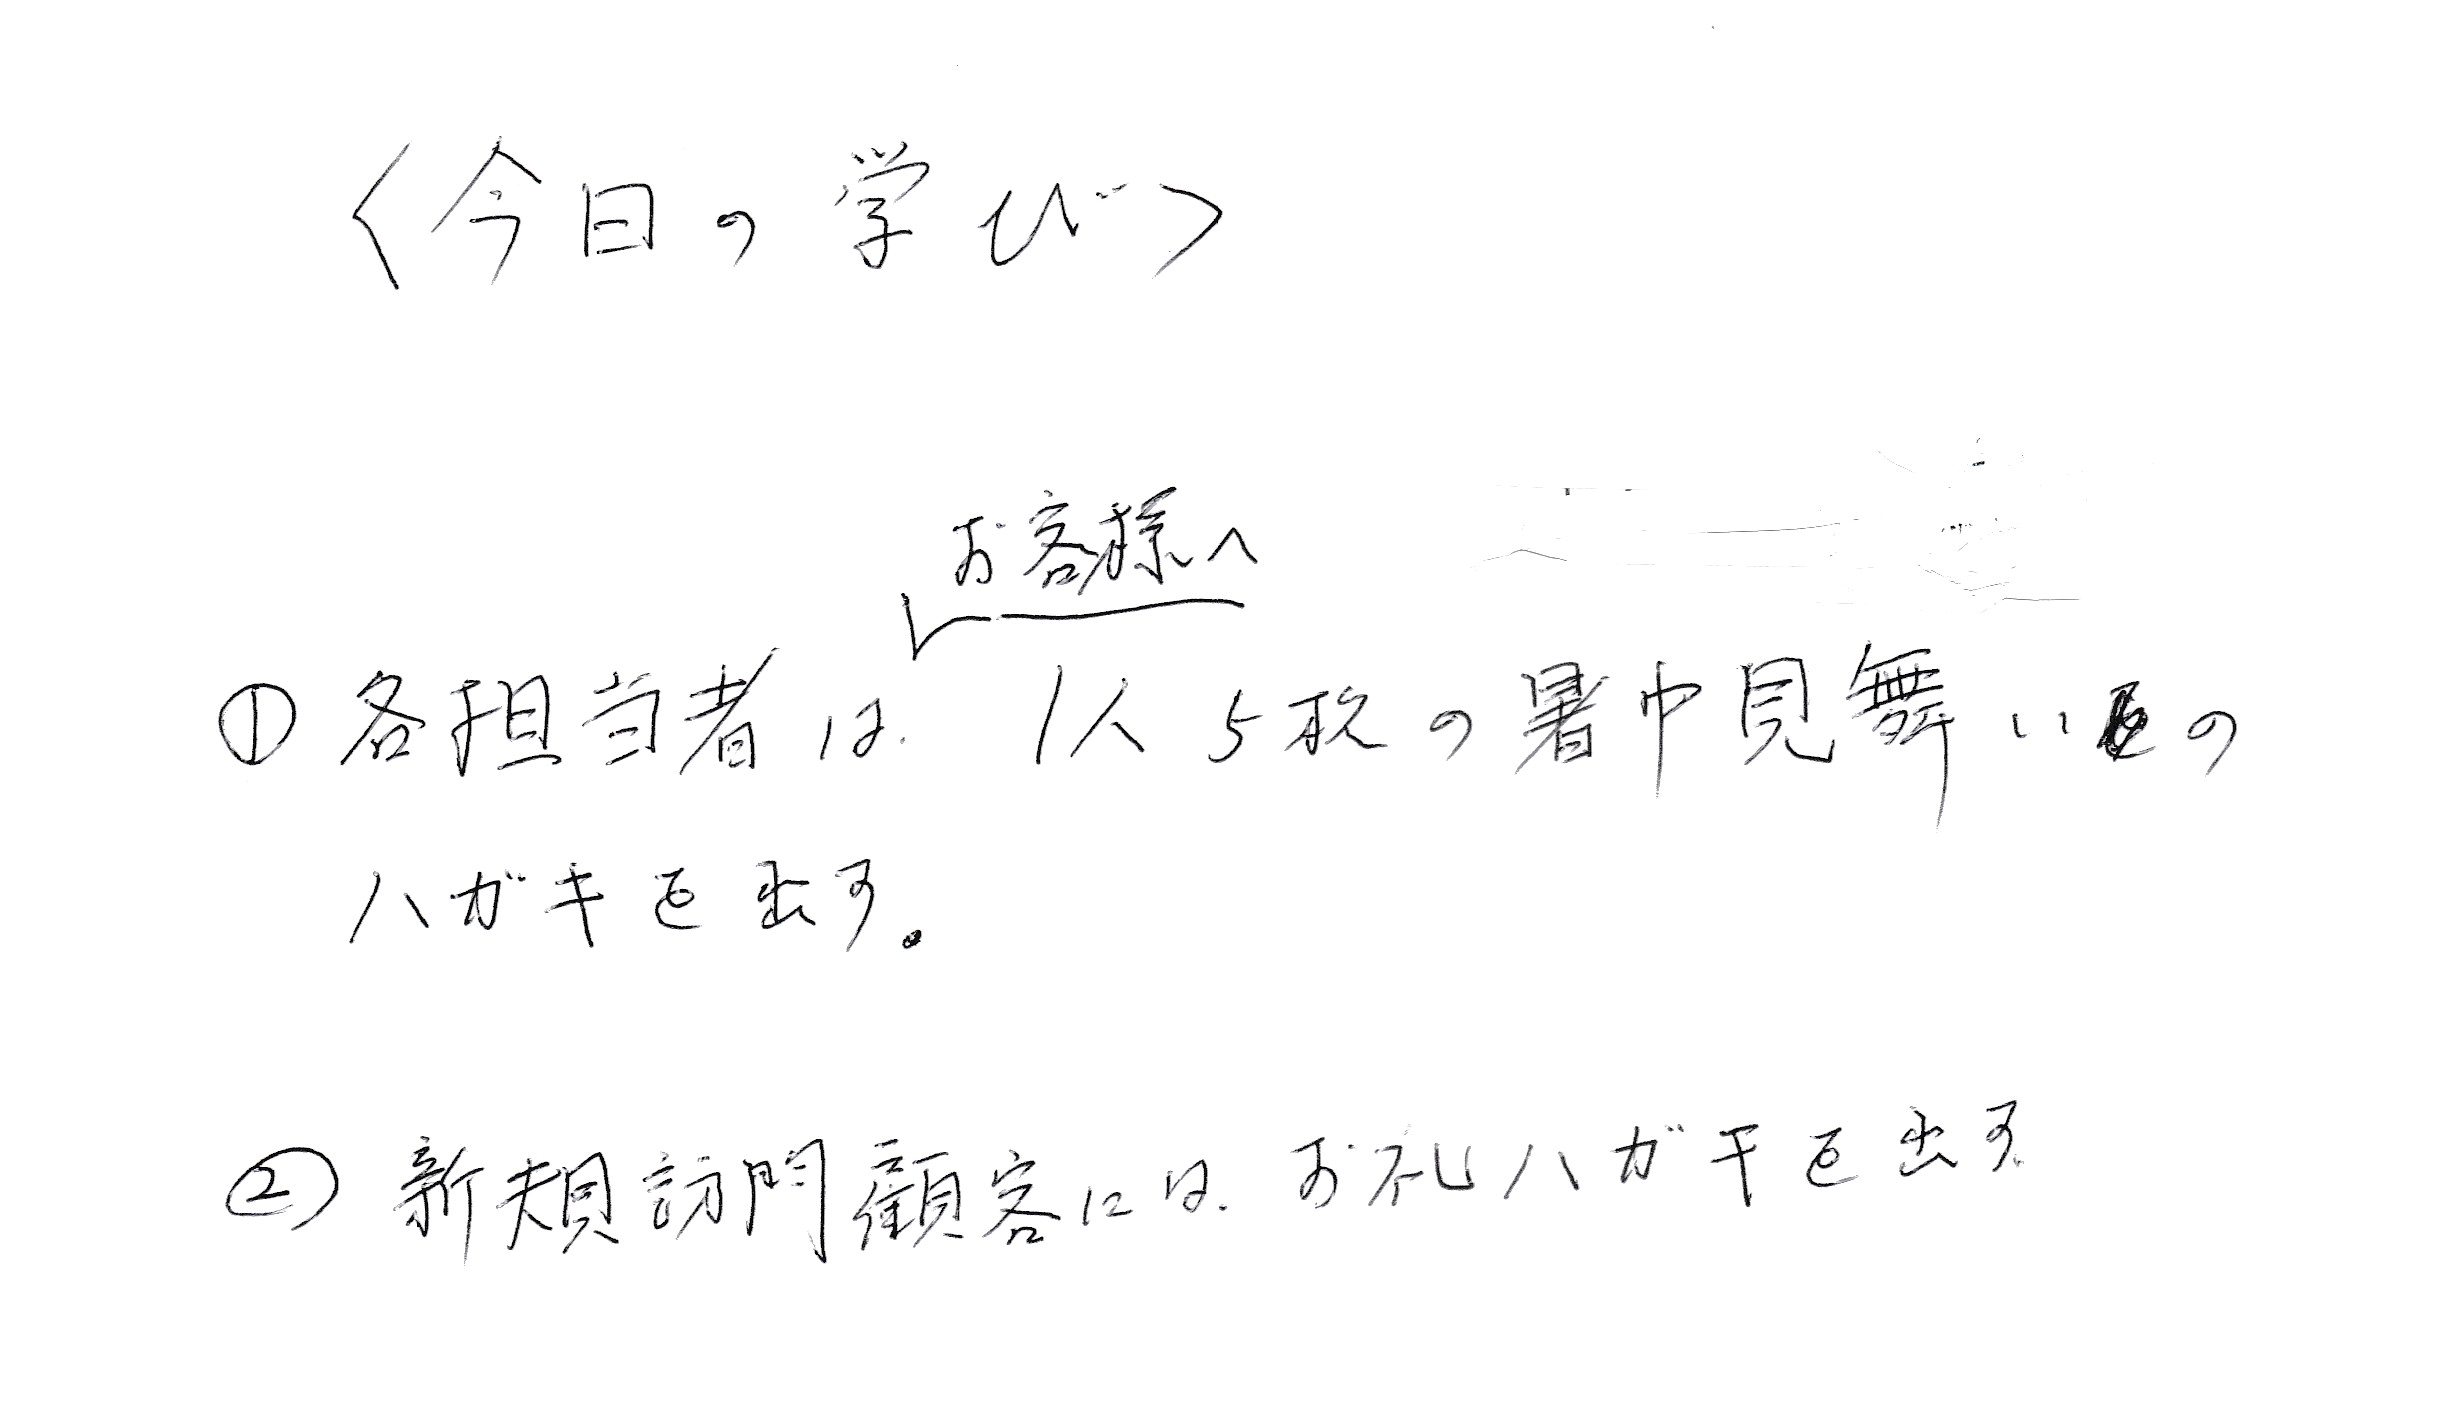 〈今日の学び〉
お客様へ
①各担当者は、1人5枚の暑中見舞いの
ハガキを出す。
②新規訪問顧客には、お礼ハガキを出す